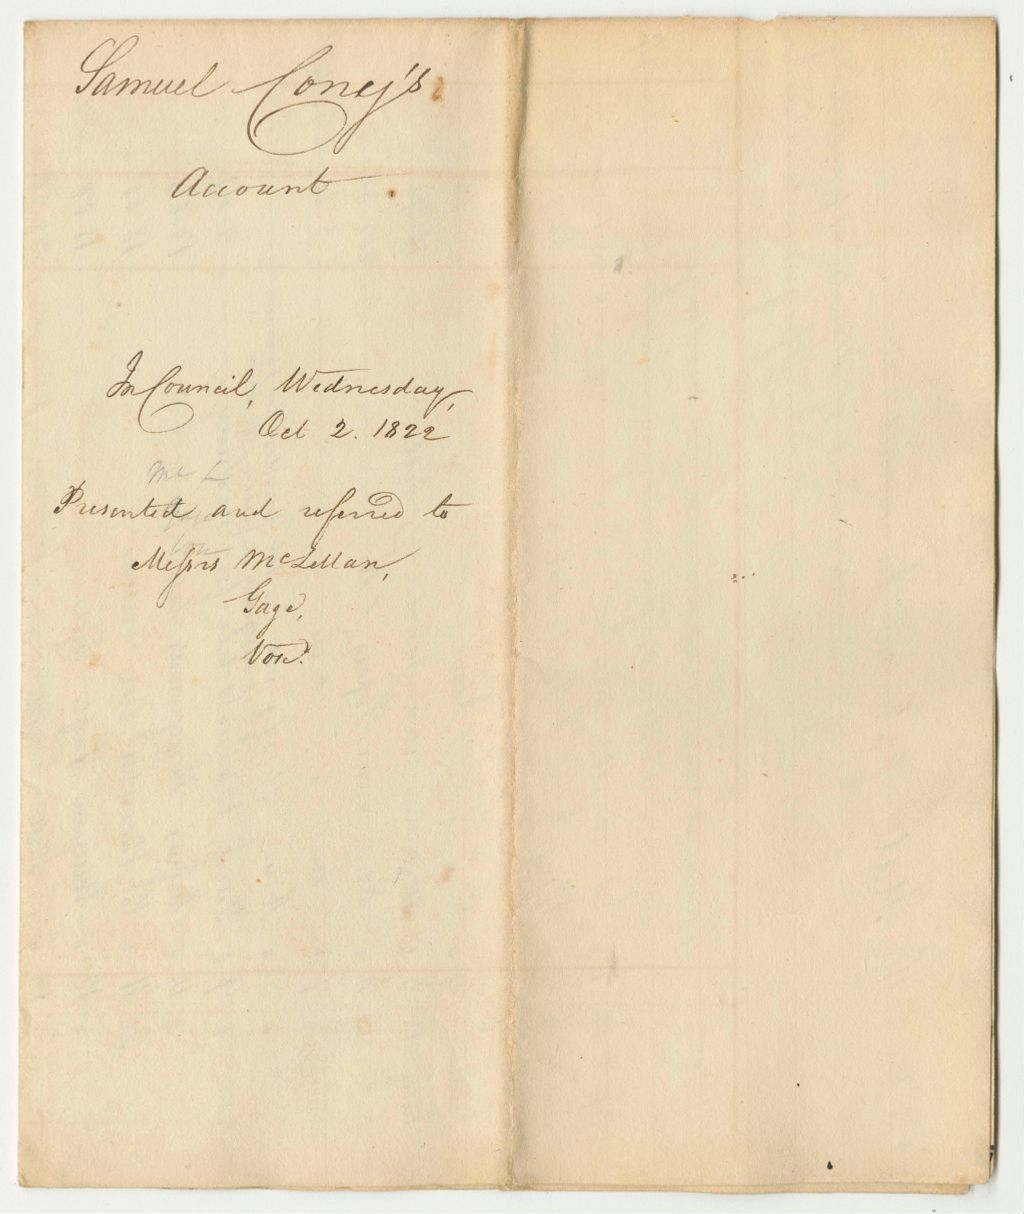 Samuel Cony's
Account
In Council, Wednesday,
Oct 2. 1822
Mc L
Presented and referred to
Messrs McLellan,
Gage,
Vose.